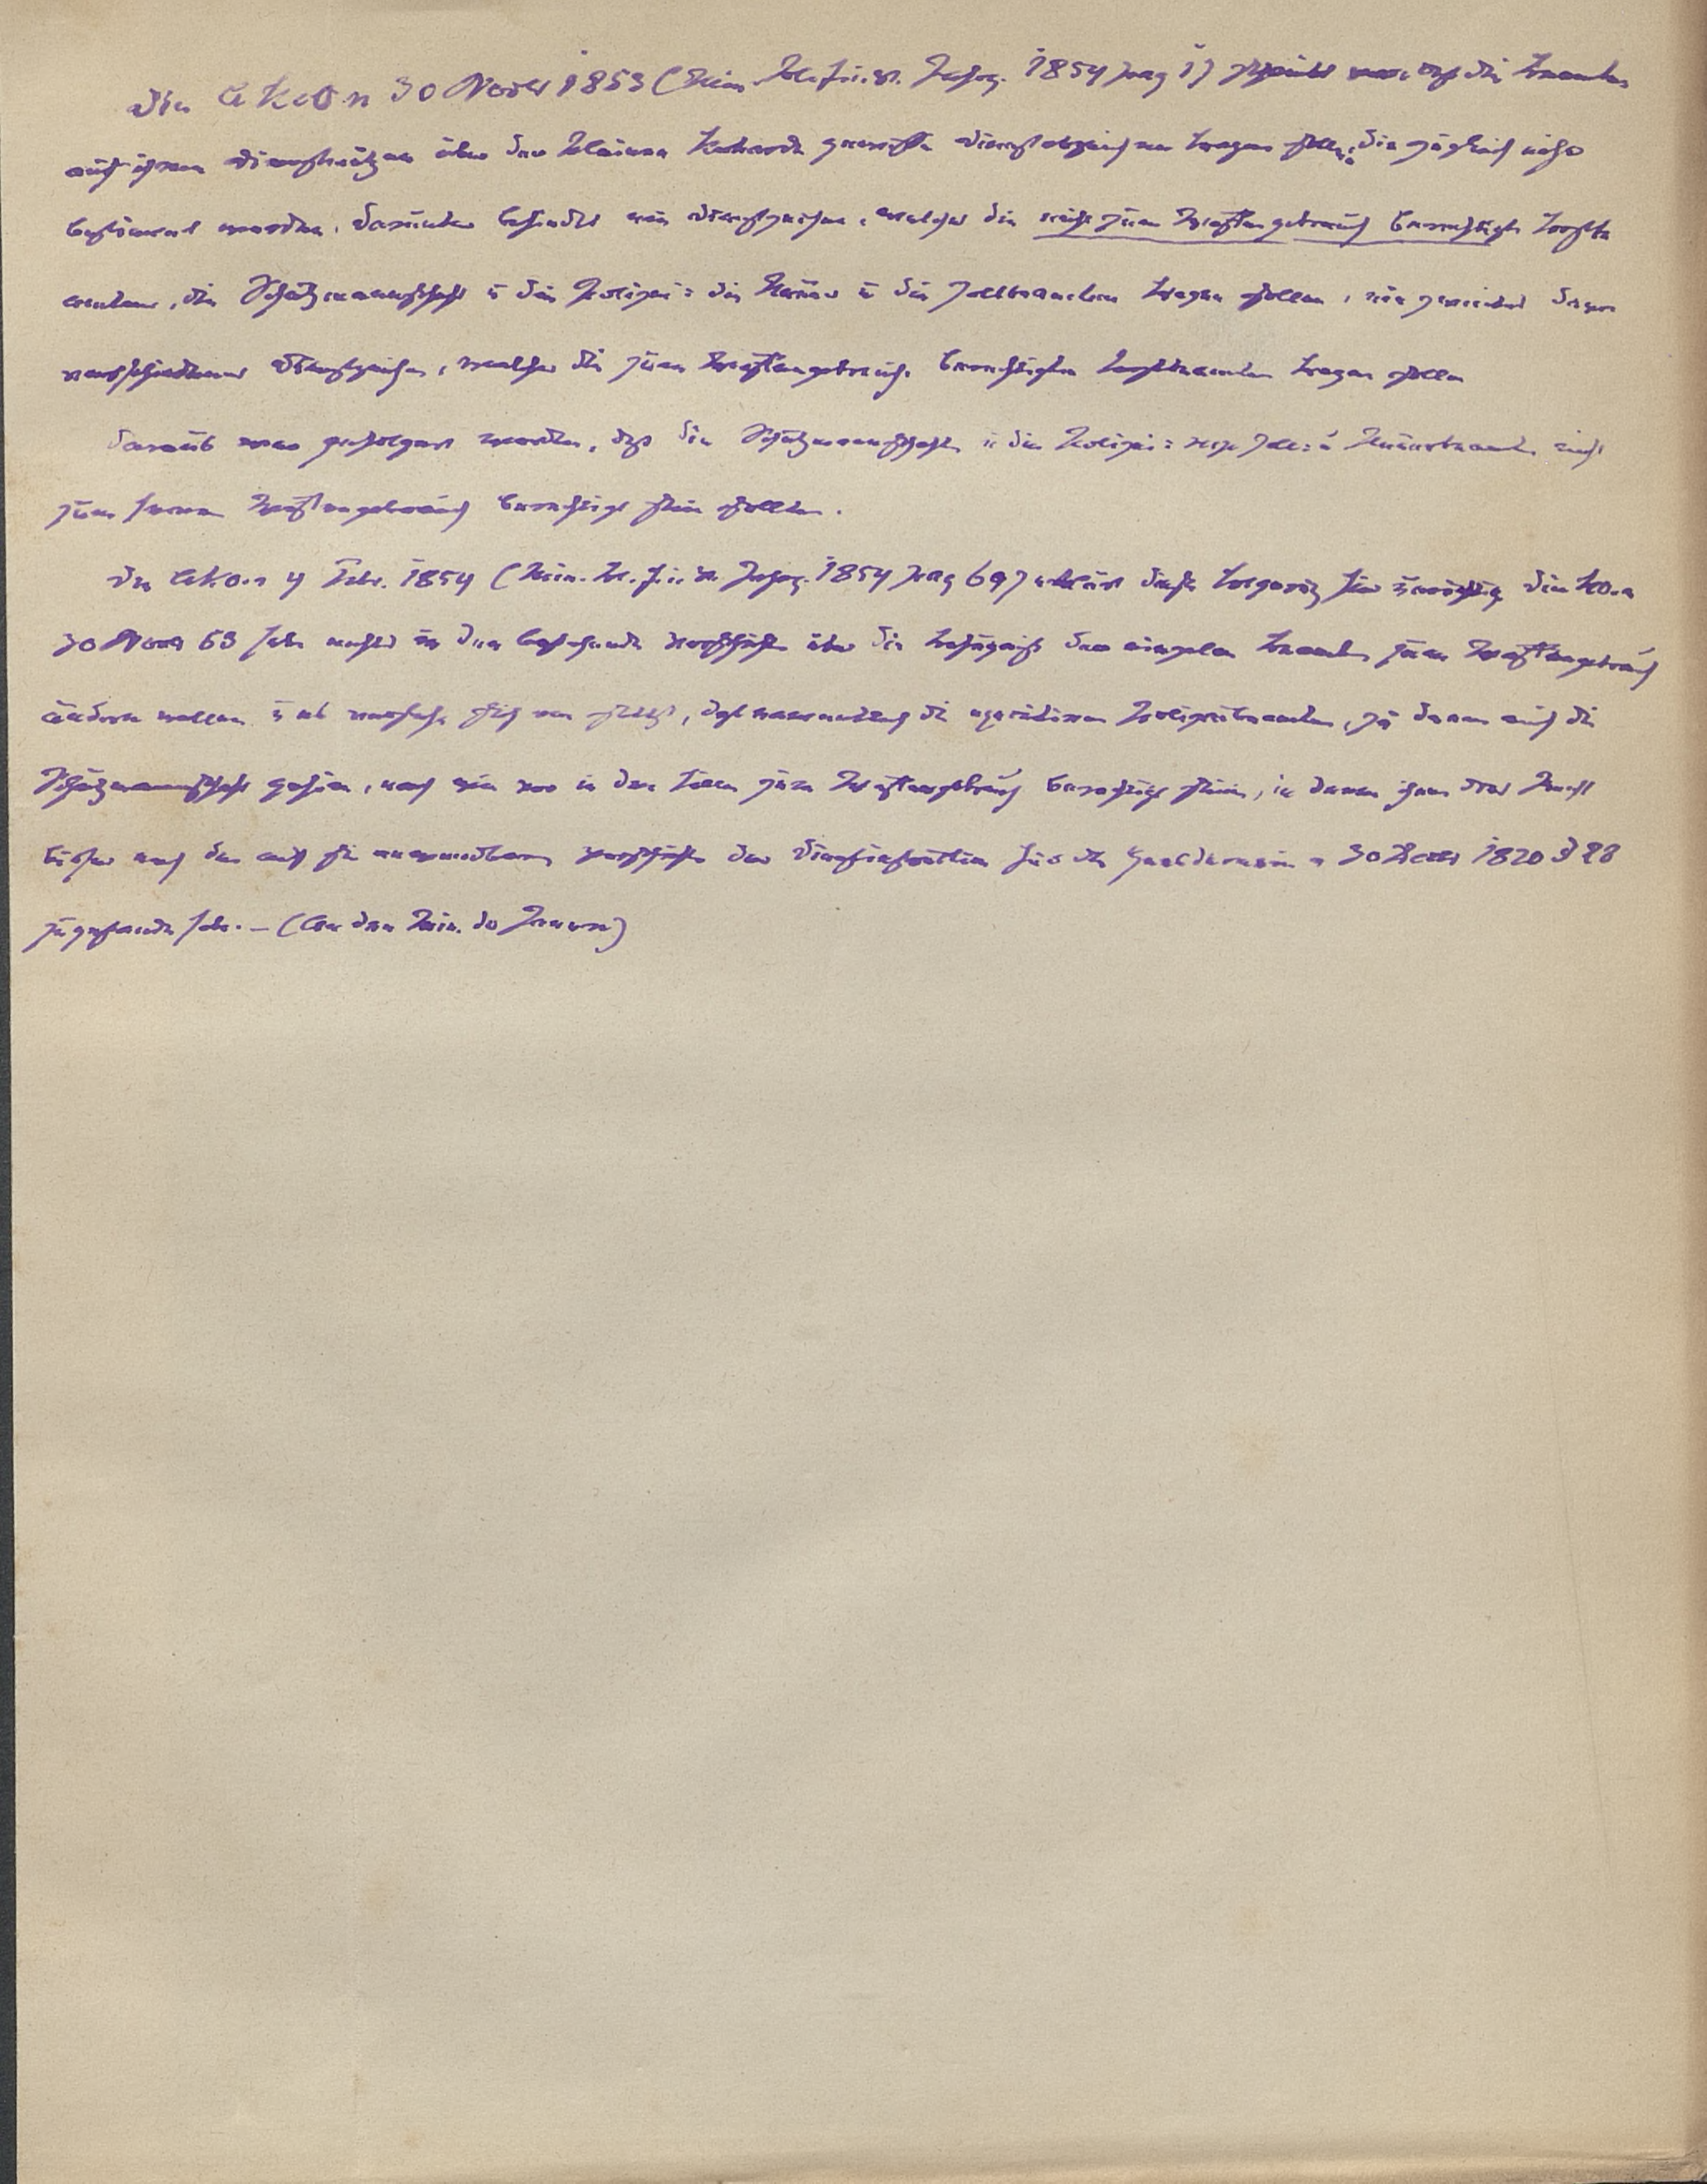 Die AKO v 30 Novbr 1853 (Min. Bl. f. i. V. Jahrg. 1854 pag 1) daß die Beamten
auf ihren Dienstmützen über der kleinen Kokarde gewisse Dienstabzeichen tragen sollen, die zugleich näher
bestimmt werden, darunter befindet ein Dienstzeichen, welches die nicht zum Waffengebrauch berechtigten Forst
beamten, die Schutzmannschaft u die Polizei= die Steuer u die Zollbeamten tragen sollen, ein davon
verschiedenes Dienstzeichen, welches die zum Waffengebrauch berechtigten Forstbeamten tragen sollen
Daraus war gefolgert worden, daß die Schutzmannschaft u die Polizei= resp Zoll= u Steuerbeamten nicht
zum ferneren Waffengebrauch berechtigt sein sollten.
Die AKO. v 4 Febr. 1854 (Min. Bl. f. i. V. Jahrg. 1854 pag 69) erklärt diese für unrichtig, die KO. v
30 Novbr 53 habe nichts in den bestehenden Vorschriften über die Befugniß der einzelnen Beamten zum Waffengebrauch
ändern wollen u es verstehe sich von selbst, daß die Polizeibeamten, zu denen auch die
Schutzmannschaft gehöre, nach wie vor in den Fällen zum Waffengebrauch berechtigt seien, in denen ihnen das Recht
bisher nach den auf sie anwendbaren Vorschriften der Dienstinstruktion für die Gendarmerie v 30 Dezbr 1820 § 28
zugestanden habe. – (An den Min. des Innern)